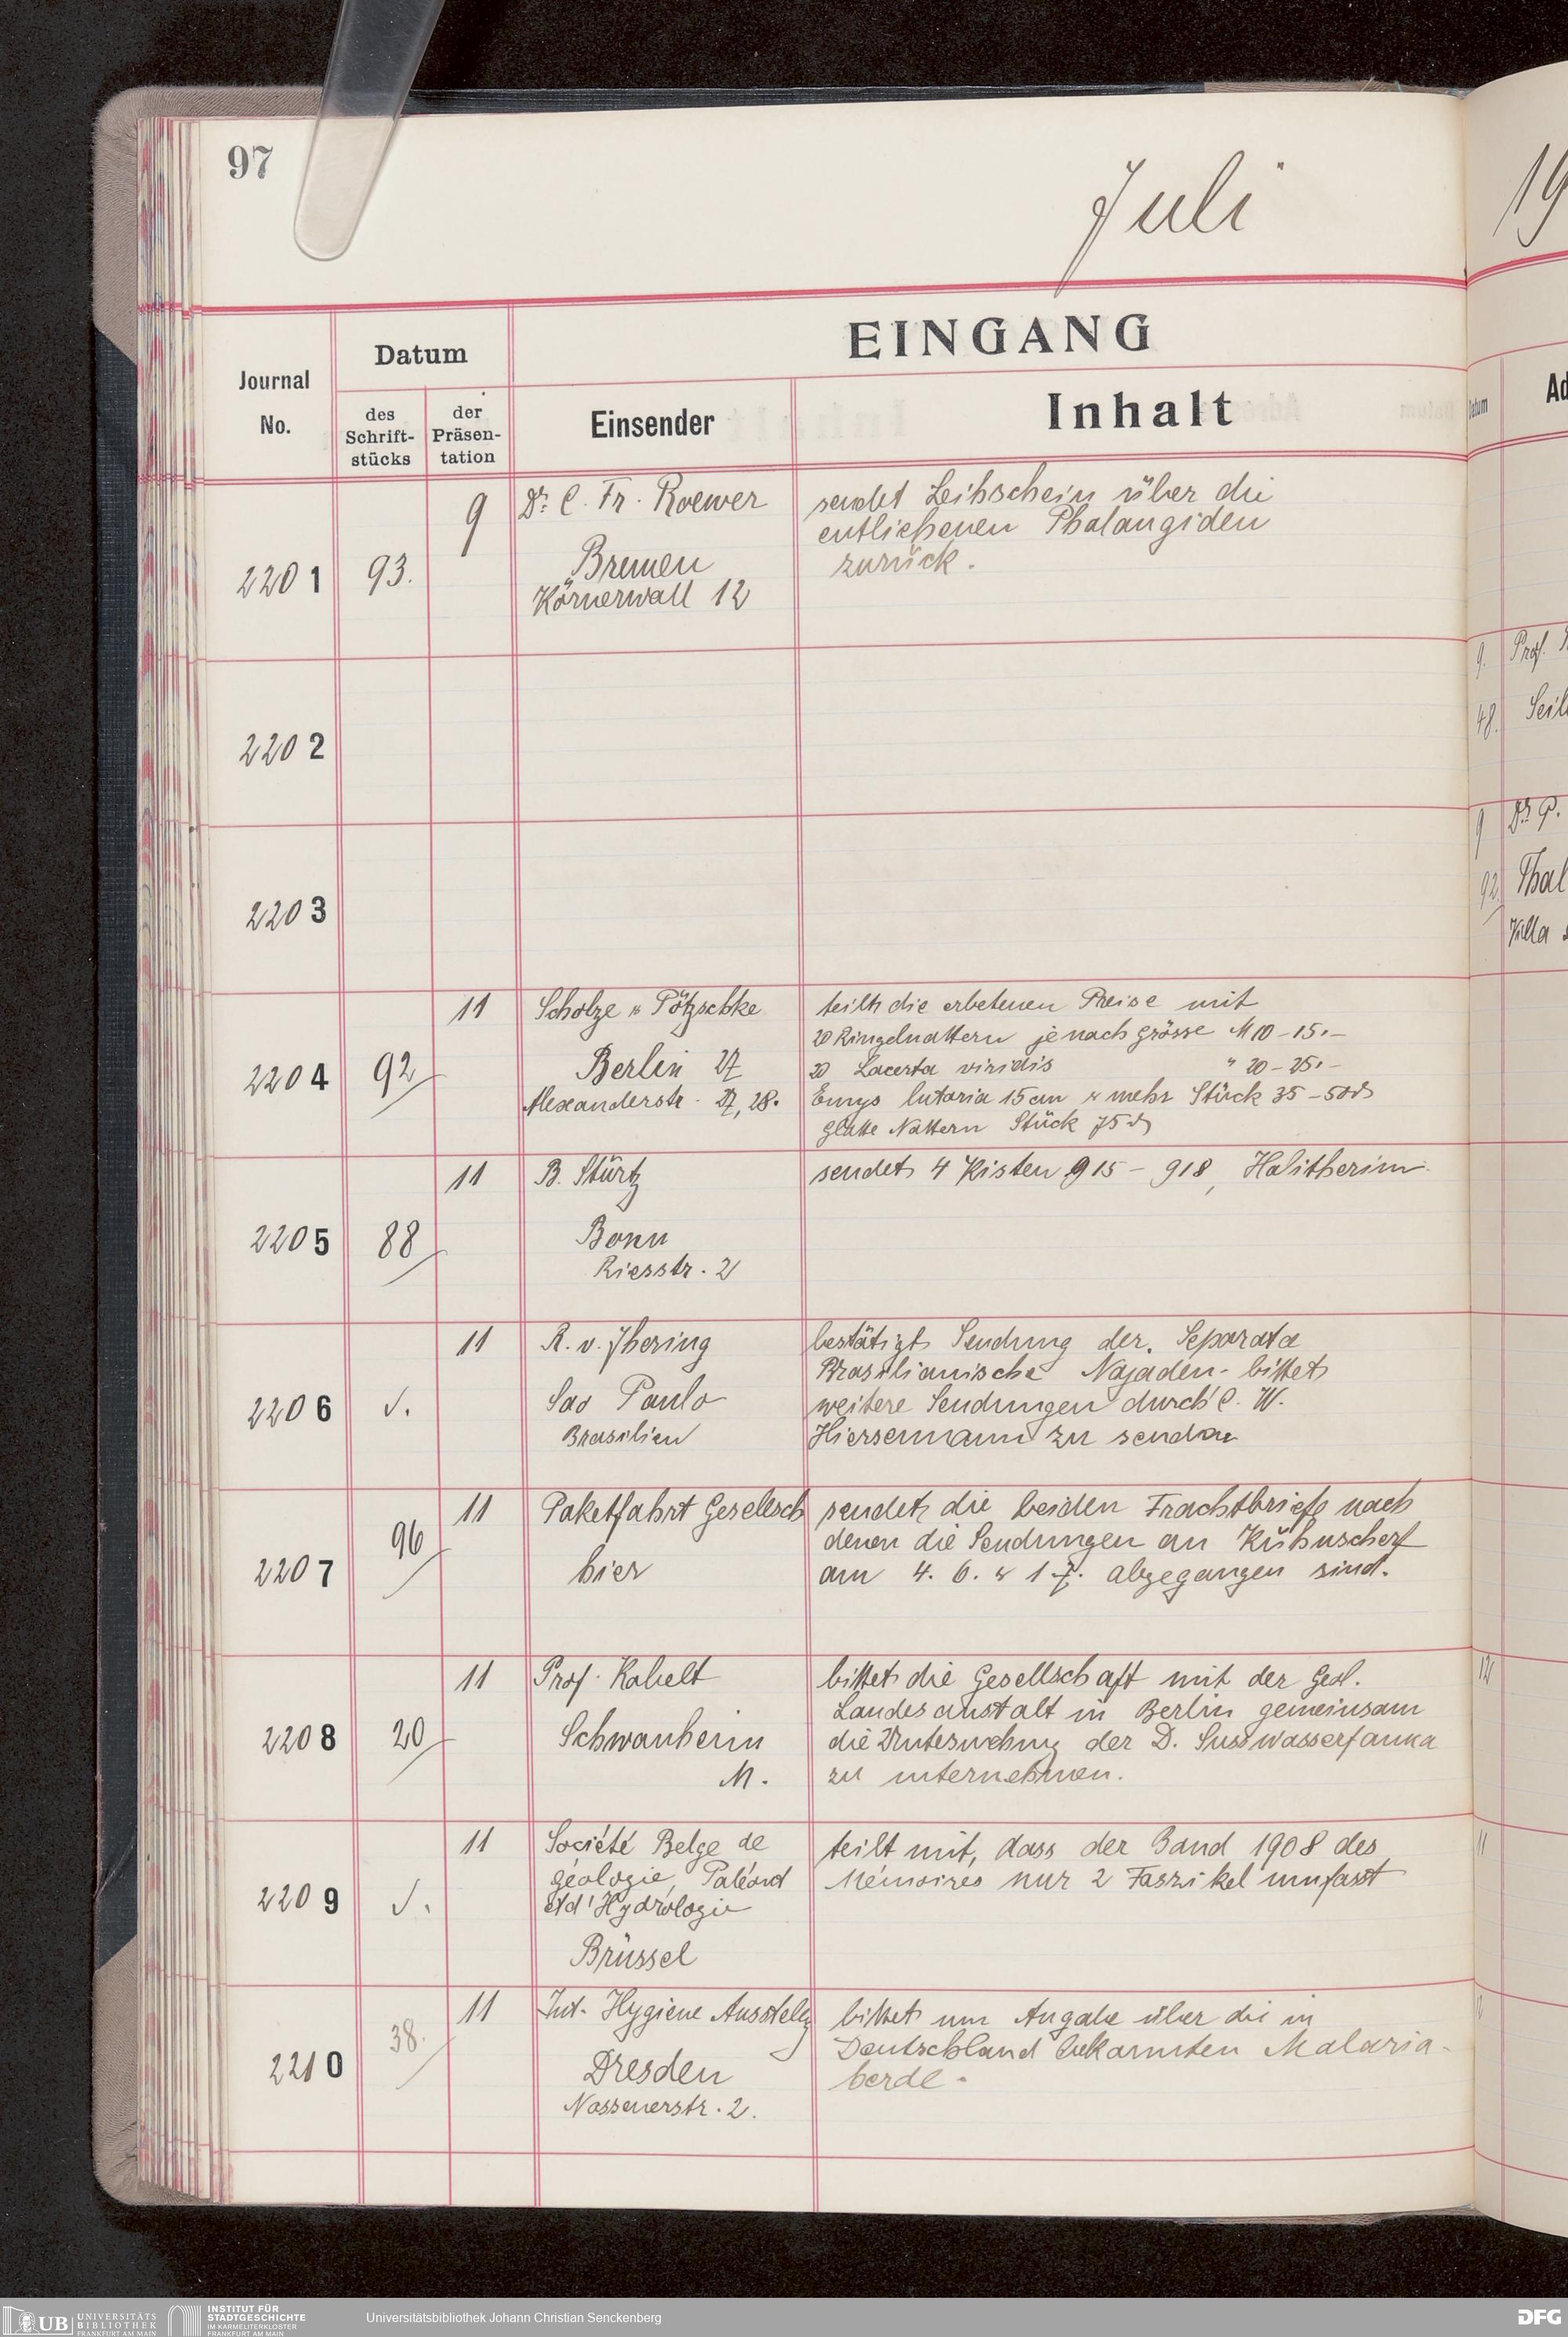 97
Juli
19
EINGANG
Journal No.
Datum
des Schrift-stücks
der Präsen-tation
Einsender
Inhalt
Datum
Ad
2201
93.
9
Dr. C. Fr. Roewer
Bremen
Körnerwall 12
sendet Leihschein über die
entliehenen Phalangiden
zurück.
2202
9.
Prof.
48.
Seil
2203
9
Dr. P.
92
Thal
Villa
2204
92
11
Scholze u Pötzschke
Berlin 27
Alexanderstr. 27, 28.
teilt die erbetenen Preise mit
20 Ringelnattern je nach Grösse M 10 - 15.-
20 Lacerta viridis " 20 - 25.-
Emys lutaria 15 cm u mehr Stück 35 - 50 ₰
glatte Nattern Stück 75 ₰
2205
88
11
B. Stürtz
Bonn
Riesstr. 2
sendet 4 Kisten 915 - 918, Halitherium
2206
√.
11
R. v. Jhering
Sao Paulo
Brasilien
bestätigt Sendung der Separata
Brasilianische Najaden - bittet
weitere Sendungen durch C. W.
Hiersemann zu senden
2207
96
11
Paketfahrt Gesellsch
hier
sendet die beiden Frachtbriefe nach
denen die Sendungen an Kühnscherf
am 4. 6. u 1 7. abgegangen sind.
2208
20
11
Prof. Kobelt
Schwanheim
M.
bittet die Gesellschaft mit der Geol.
Landesanstalt in Berlin gemeinsam
die Untersuchung der D. Susswasserfauna
zu unternehmen.
12
2209
√.
11
Société Belge de
géologie, Paléont
et d'Hydrologie
Brüssel
teilt mit, dass der Band 1908 des
Mémoires nur 2 Faszikel umfasst
11
2210
38.
11
Int. Hygiene Ausstellg
Dresden
Nossenerstr. 2.
bittet um Angabe über die in
Deutschland bekannten Malaria-
herde.
UB UNIVERSITÄTS BIBLIOTHEK FRANKFURT AM MAIN
INSTITUT FÜR STADTGESCHICHTE IM KARMELITERKLOSTER FRANKFURT AM MAIN
Universitätsbibliothek Johann Christian Senckenberg
DFG